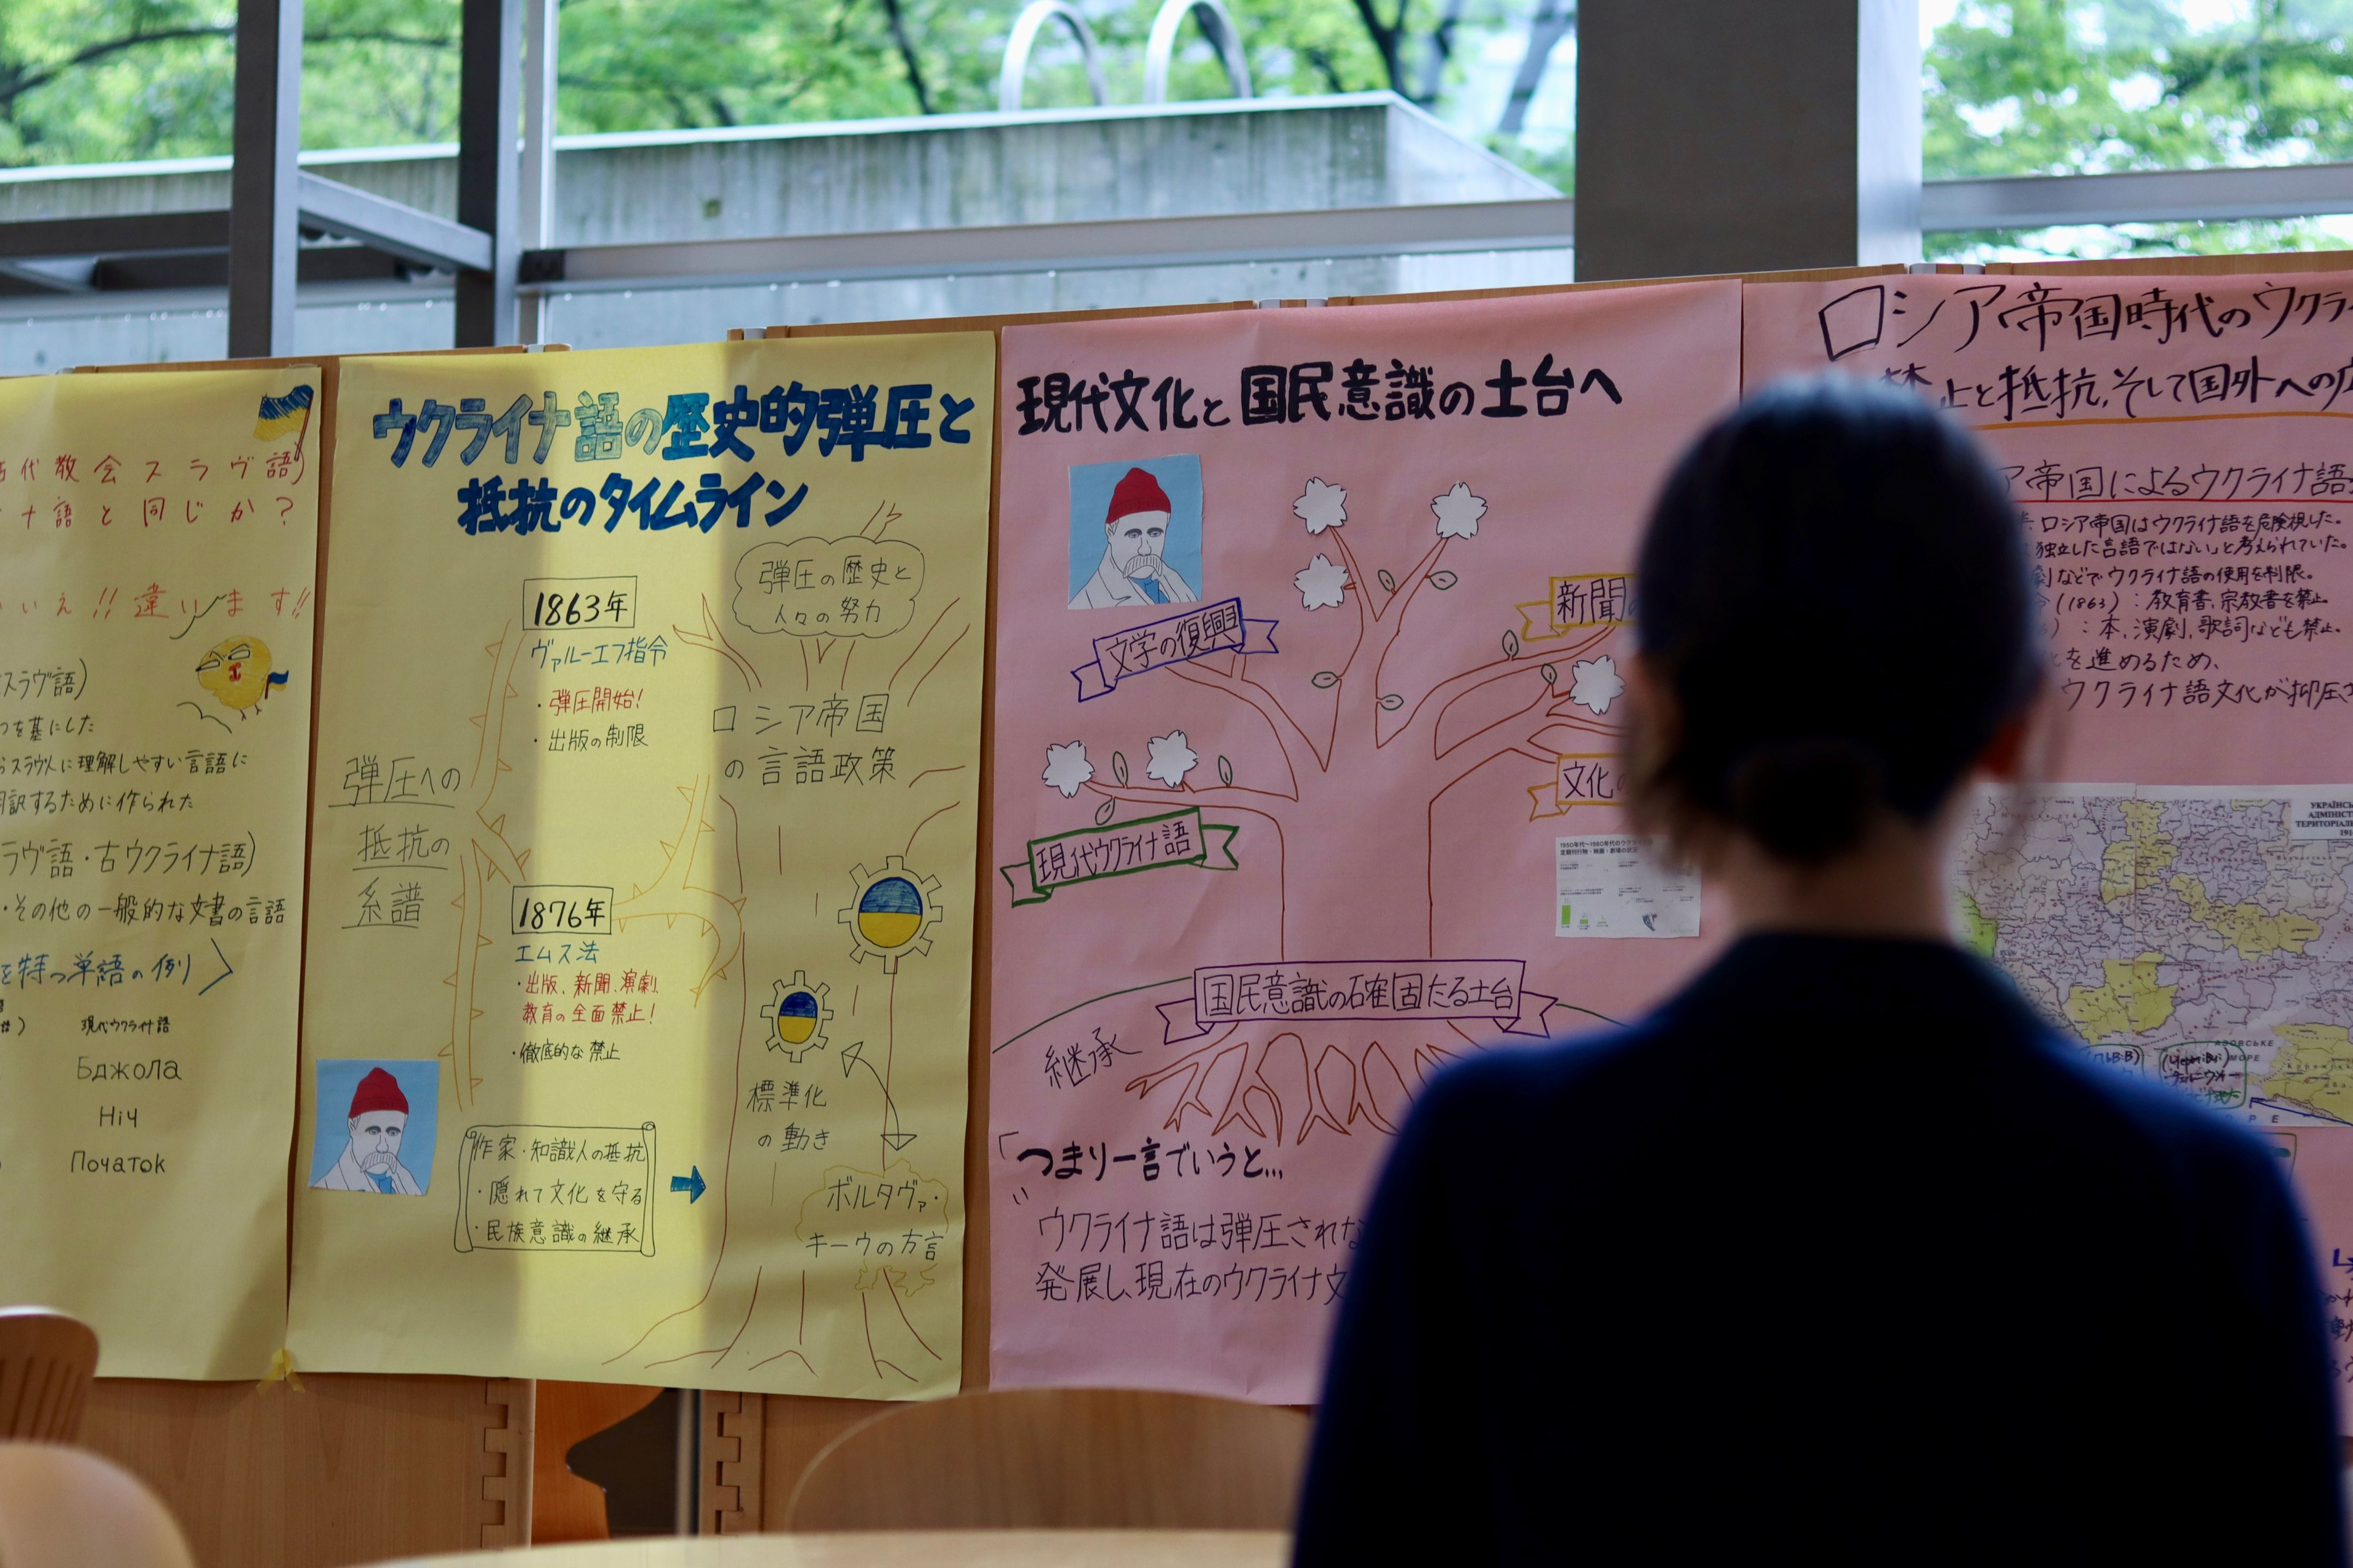 代教会スラヴ語)
ナ語と同じか?
いいえ!! 違います!!
スラヴ語)
つを基にした
スラヴ人に理解しやすい言語に
訳するために作られた
ラヴ語・古ウクライナ語)
・その他の一般的な文書の言語
を持つ単語の例〉
現代ウクライナ語
Бджола
Ніч
Початок
ウクライナ語の歴史的弾圧と
抵抗のタイムライン
1863年
ヴァルーエフ指令
・弾圧開始!
・出版の制限
弾圧の歴史と
人々の努力
ロシア帝国
の言語政策
弾圧への
抵抗の
系譜
1876年
エムス法
・出版、新聞、演劇、
教育の全面禁止!
・徹底的な禁止
作家・知識人の抵抗
・隠れて文化を守る
・民族意識の継承
標準化
の動き
ポルタヴァ・
キーウの方言
現代文化と国民意識の土台へ
文学の復興
新聞
文化
現代ウクライナ語
国民意識の確固たる土台
継承
「つまり一言でいうと...
ウクライナ語は弾圧されな
発展し、現在のウクライナ文
ロシア帝国時代のウクライ
止と抵抗,そして国外への
ア帝国によるウクライナ語
ロシア帝国はウクライナ語を危険視した。
独立した言語ではない」と考えられていた。
などでウクライナ語の使用を制限。
(1863):教育書、宗教書を禁止
):本、演劇、歌詞なども禁止。
を進めるため、
ウクライナ語文化が抑圧さ
УКРАЇНСЬ
АДМІНІСТ
ТЕРИТОРІАЛ
АЗОВСЬКЕ
МОРЕ